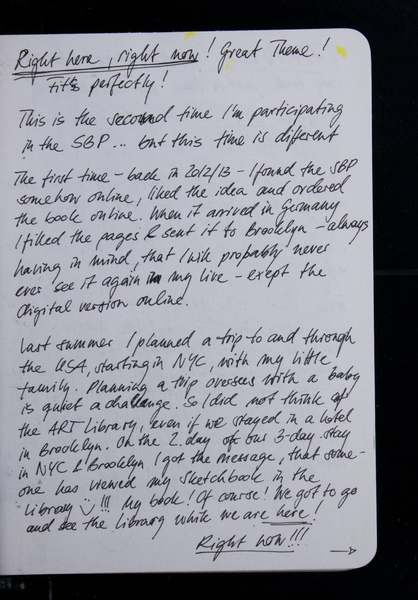 Right here, right now! Great Theme!
Fit's perfectly!
This is the second time I'm participating
in the SBP... but this time is different
The first time - back in 2012/13 - I found the SBP
somehow online, liked the idea and ordered
the book online. When it arrived in Germany
I filled the pages & sent it to Brooklyn - always
having in mind, that I will probably never
ever see it again in my live - exept the
digital version online.
Last summer I planned a trip to and through
the USA, starting in NYC, with my little
family. Planning a trip overseas with a baby
is quiet a challenge. So I did not think of
the ART Library, even if we stayed in a hotel
in Brooklyn. On the 2. day of our 3-day stay
in NYC & Brooklyn I got the message, that some-
one has viewed my sketchbook in the
library !!! My book! Of course! We got to go
and see the library while we are here!
Right now!!!